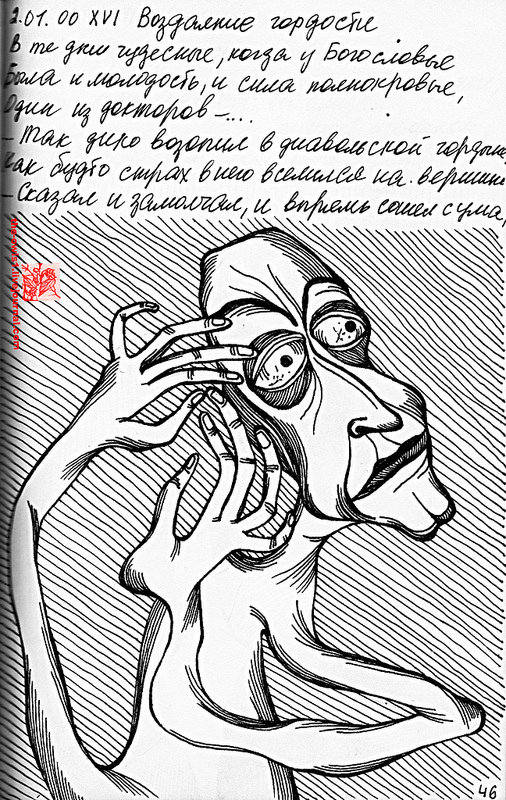 2.01.00 XVI Воздаяние гордости
В те дни чудесные, когда у Богословья
Была и молодость, и сила полнокровья,
Один из докторов – ....
– Так дико возопил в диавольской гордыне,
как будто страх в него вселился на вершине
– Сказал и замолчал, и впрямь сошел с ума,
46